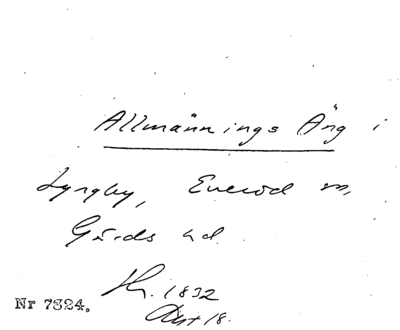 Allmännings Äng i
Lyngby, Everöd m,
Gärds hd.
1832
Nr 7324.